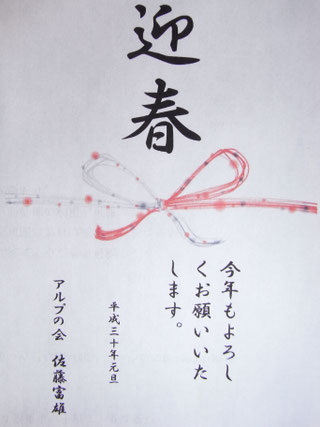 迎春
今年もよろし
くお願いいた
します。
平成三十年元旦
アルプの会　佐藤富雄